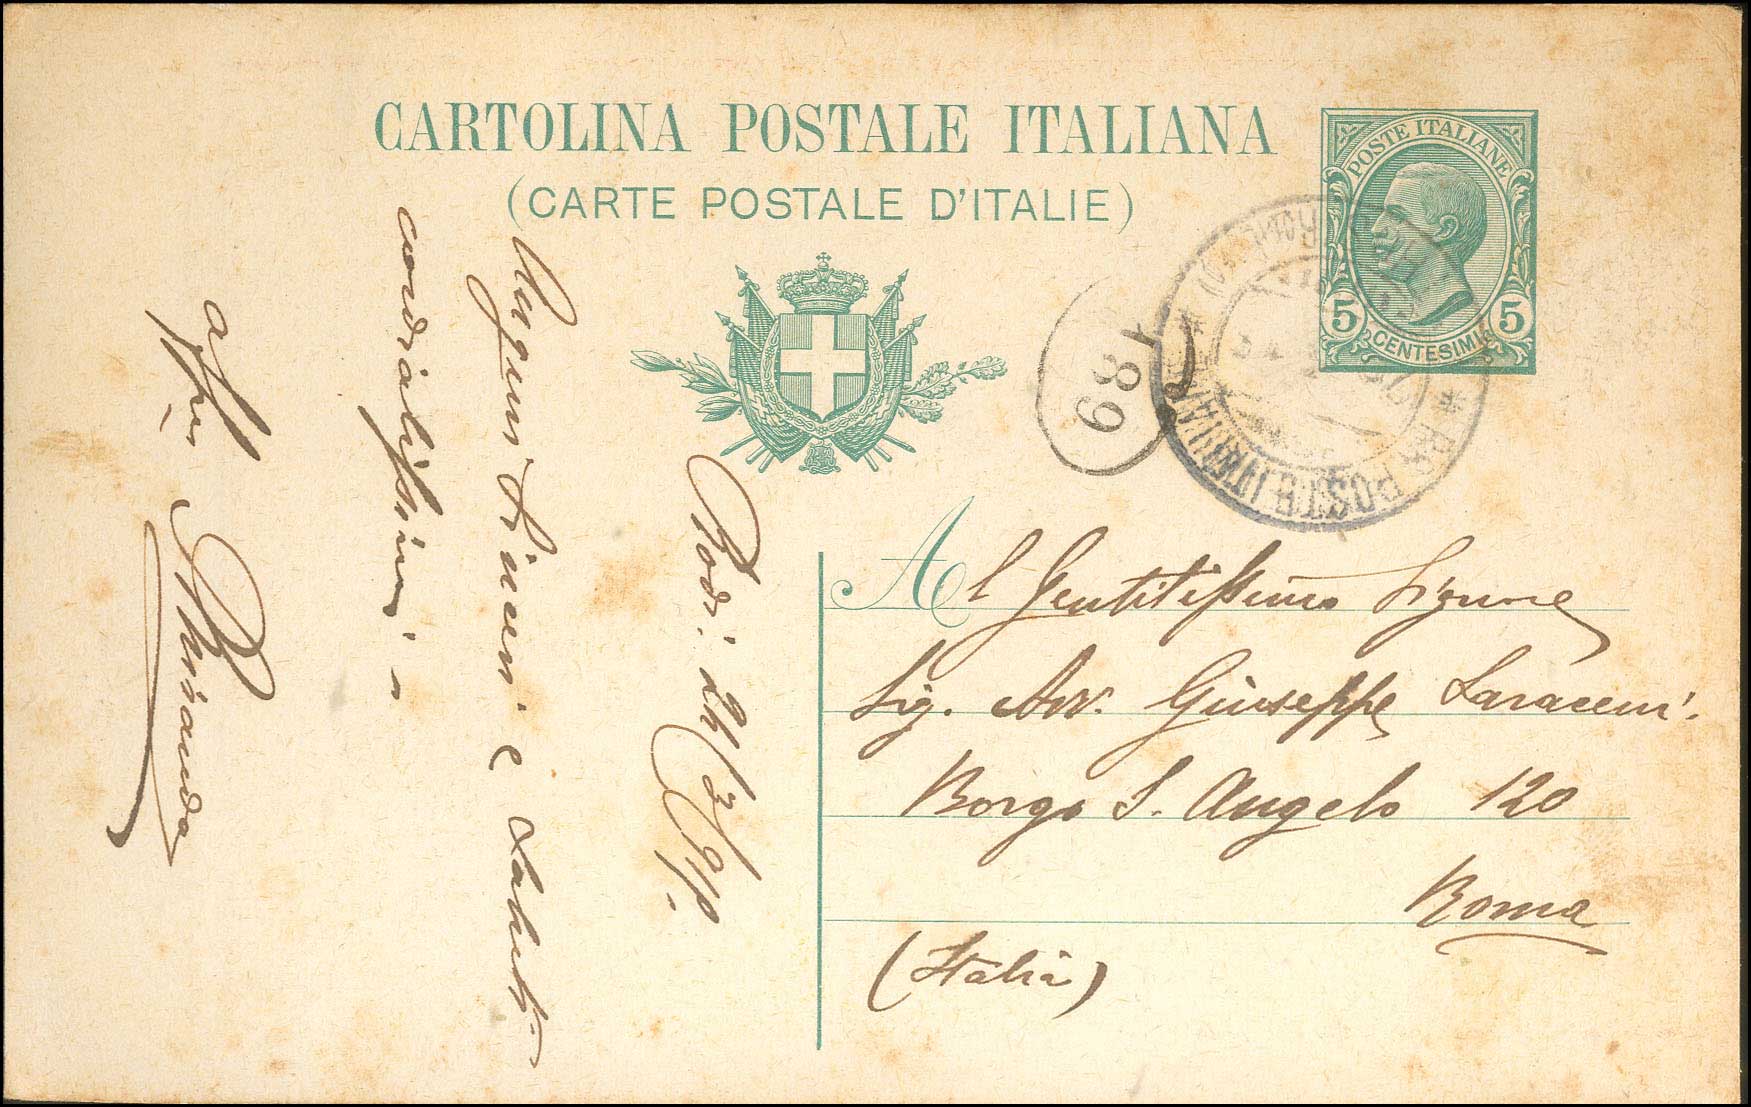 CARTOLINA POSTALE ITALIANA
(CARTE POSTALE D'ITALIE)
POSTE ITALIANE
5 CENTESIMI 5
189
R.e POSTE ITALIANE
Al Gentilissimo Signore
Sig. Avv. Giuseppe Saraceni.
Borgo S. Angelo 120
Roma
(Italia)
Rodi. 24/3/91?.
Auguri sinceri e saluti
cordialissimi
aff.
Miranda